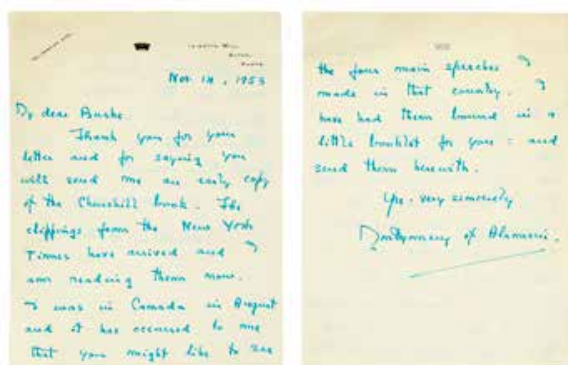 Nov 14, 1953
My dear Burke.
Thank you for your
letter and for saying you
will send me an early copy
of the Churchill book. The
clippings from the New York
Times have arrived and I
am reading them now.
I was in Canada in August
and it has occurred to me
that you might like to see
the four main speeches I
made in that country. I
have had them bound in a
little booklet for you: and
send them herewith.
Yrs. very sincerely
Montgomery of Alamein.